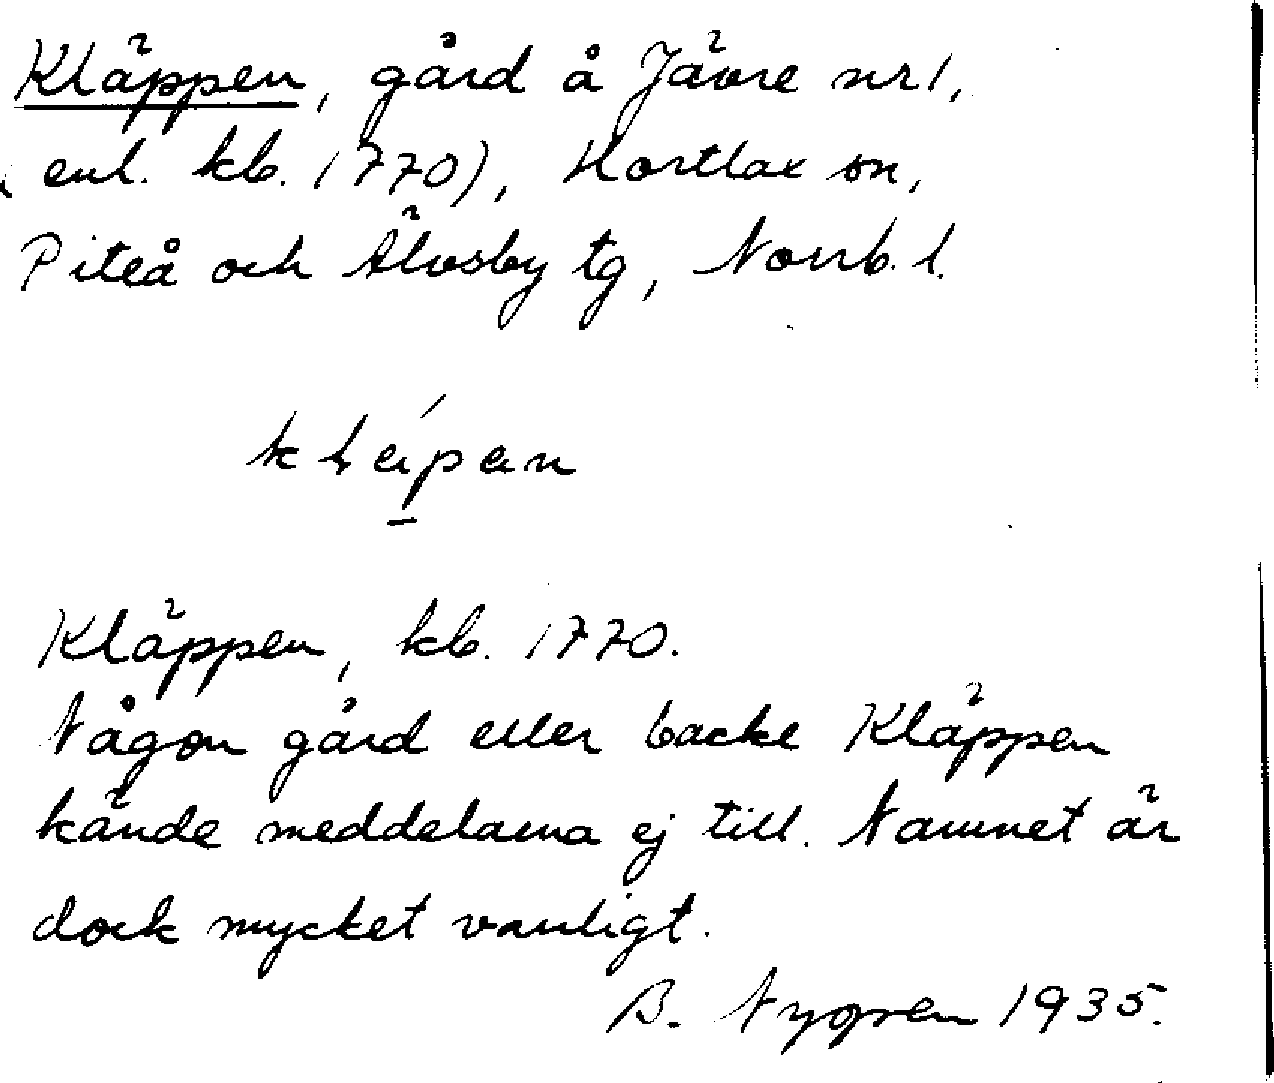 Kläppen, gård å Jävre nr 1,
(enl. kb. 1770), Hortlax sn,
Piteå och Älvsby tg, Norrb. l.
Kläppen, kb. 1770.
Någon gård eller backe Kläppen
kände meddelarna ej till. Namnet är
dock mycket vanligt.
B. Nygren 1935.